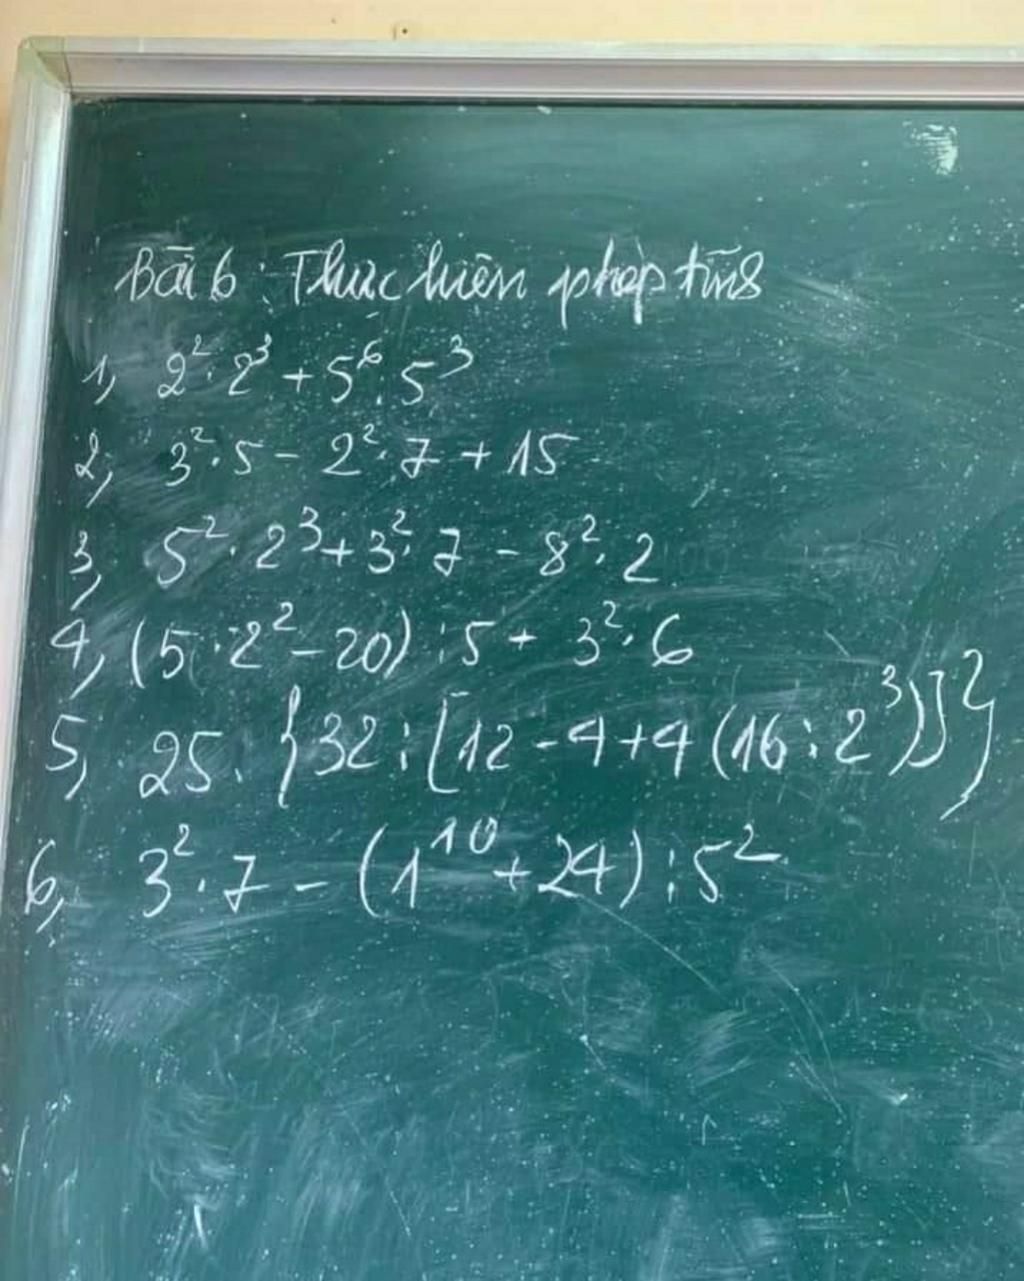 Bài 6: Thực hiện phép tính
1, 2². 2³ + 5⁶: 5³
2, 3². 5 - 2². 7 + 15
3, 5². 2³ + 3². 7 - 8². 2
4, (5. 2² - 20) : 5 + 3². 6
5, 25. {32 : [12 - 4 + 4 (16 : 2³)]}
6, 3². 7 - (1¹⁰ + 24) : 5²